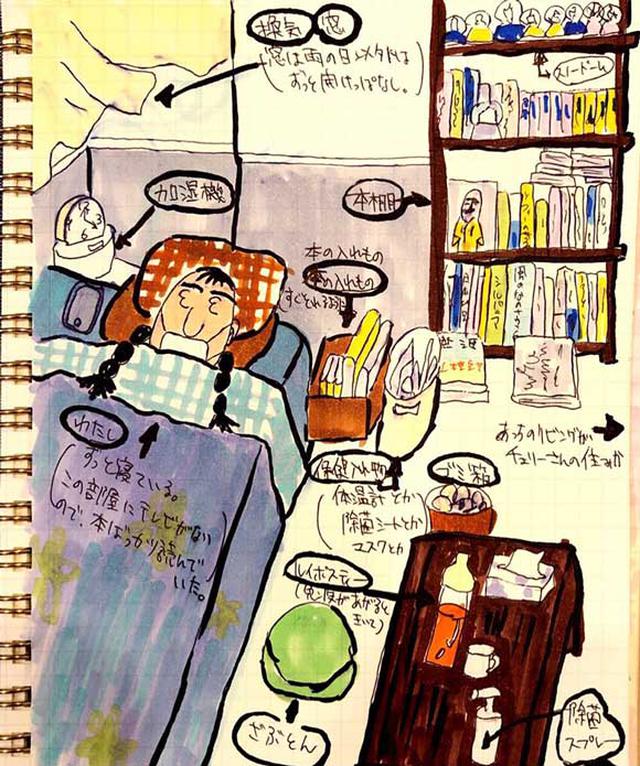 換気 窓
窓は雨の日以外は
ずっと開けっぱなし。
スノードーム
加湿機
本棚
本の入れもの
本の入れもの
わたし
ずっと寝ている。
この部屋にテレビがない
ので、本ばっかり読んで
いた。
保健入れ物
体温計とか
除菌シートとか
マスクとか
ゴミ箱
あっちのリビングが
チェリーさんの住みか
ルイボスティー
ざぶとん
除菌
スプレー